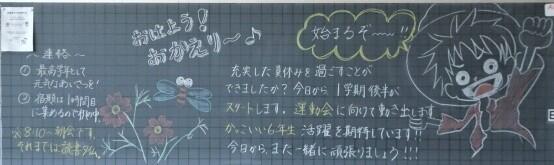 おはよう!
おかえり〜♪
始まるぞ〜〜!!
〜連絡〜
① 最高学年として
元気なあいさつを!
② 宿題は1時間目
に集めるので
※8:10〜朝会です。
それまでは読書タイム。
充実した夏休みを過ごすことが
できましたか?今日から1学期後半が
スタートします。運動会に向けて動き出します
かっこいい6年生 活躍を期待しています!!
今日から、また一緒に頑張りましょう!!!